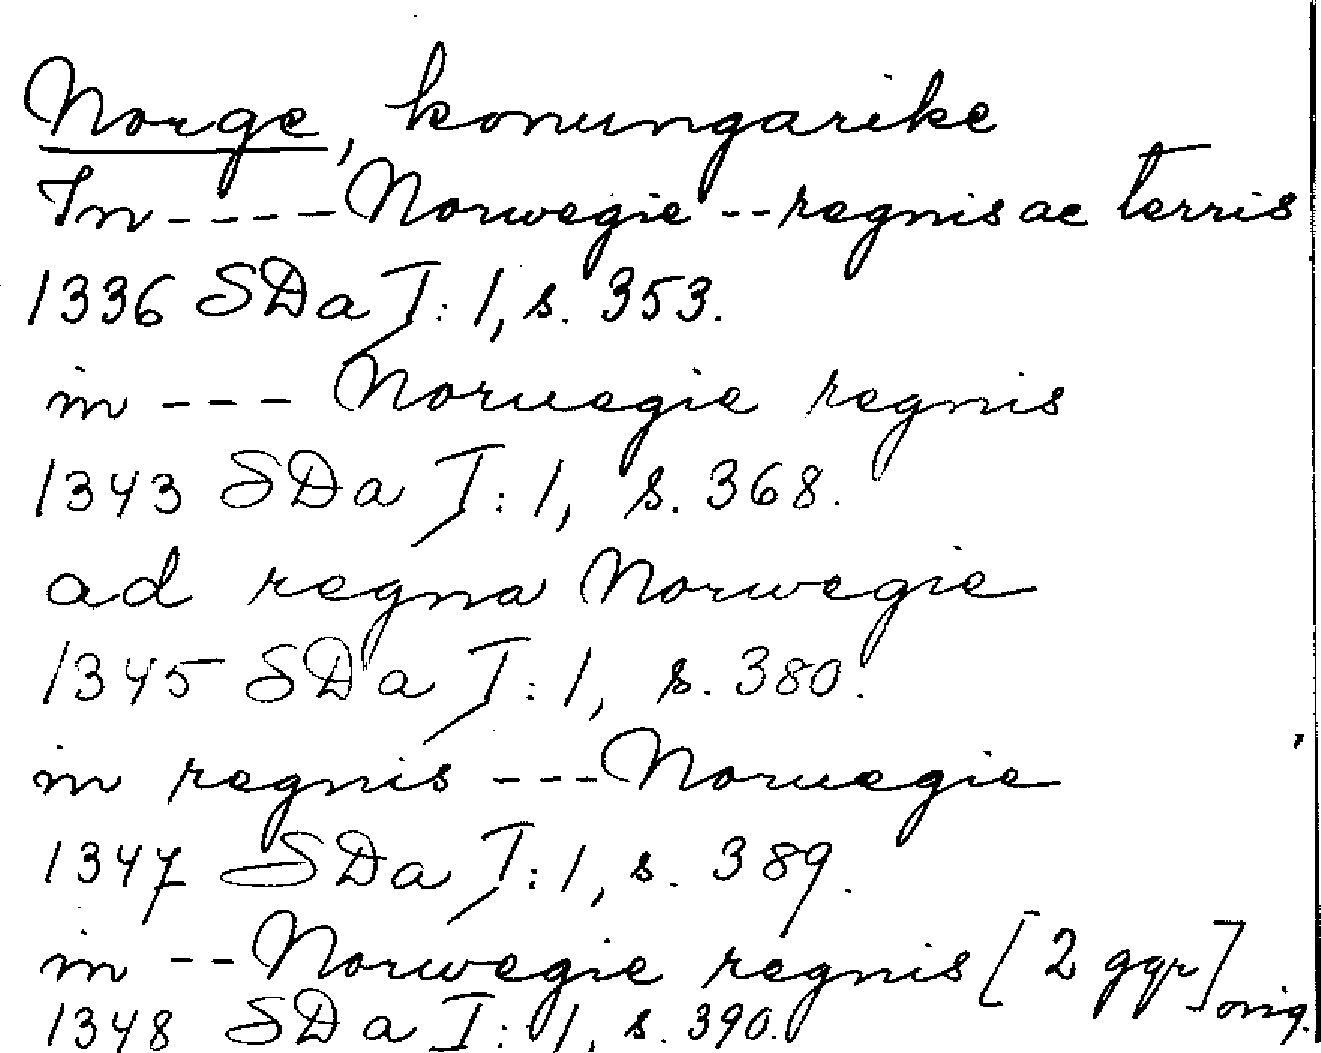 Norge, konungarike
In ---- Norwegie -- regnis ac terris
1336 SDa I:1, s. 353.
in --- Noruegie regnis
1343 SDa I:1, s. 368.
ad regna Norwegie
1345 SDa I:1, s. 380.
in regnis --- Noruegie
1347 SDa I:1, s. 389.
in -- Norwegie regnis [2 ggr] orig.
1348 SDa I:1, s. 390.